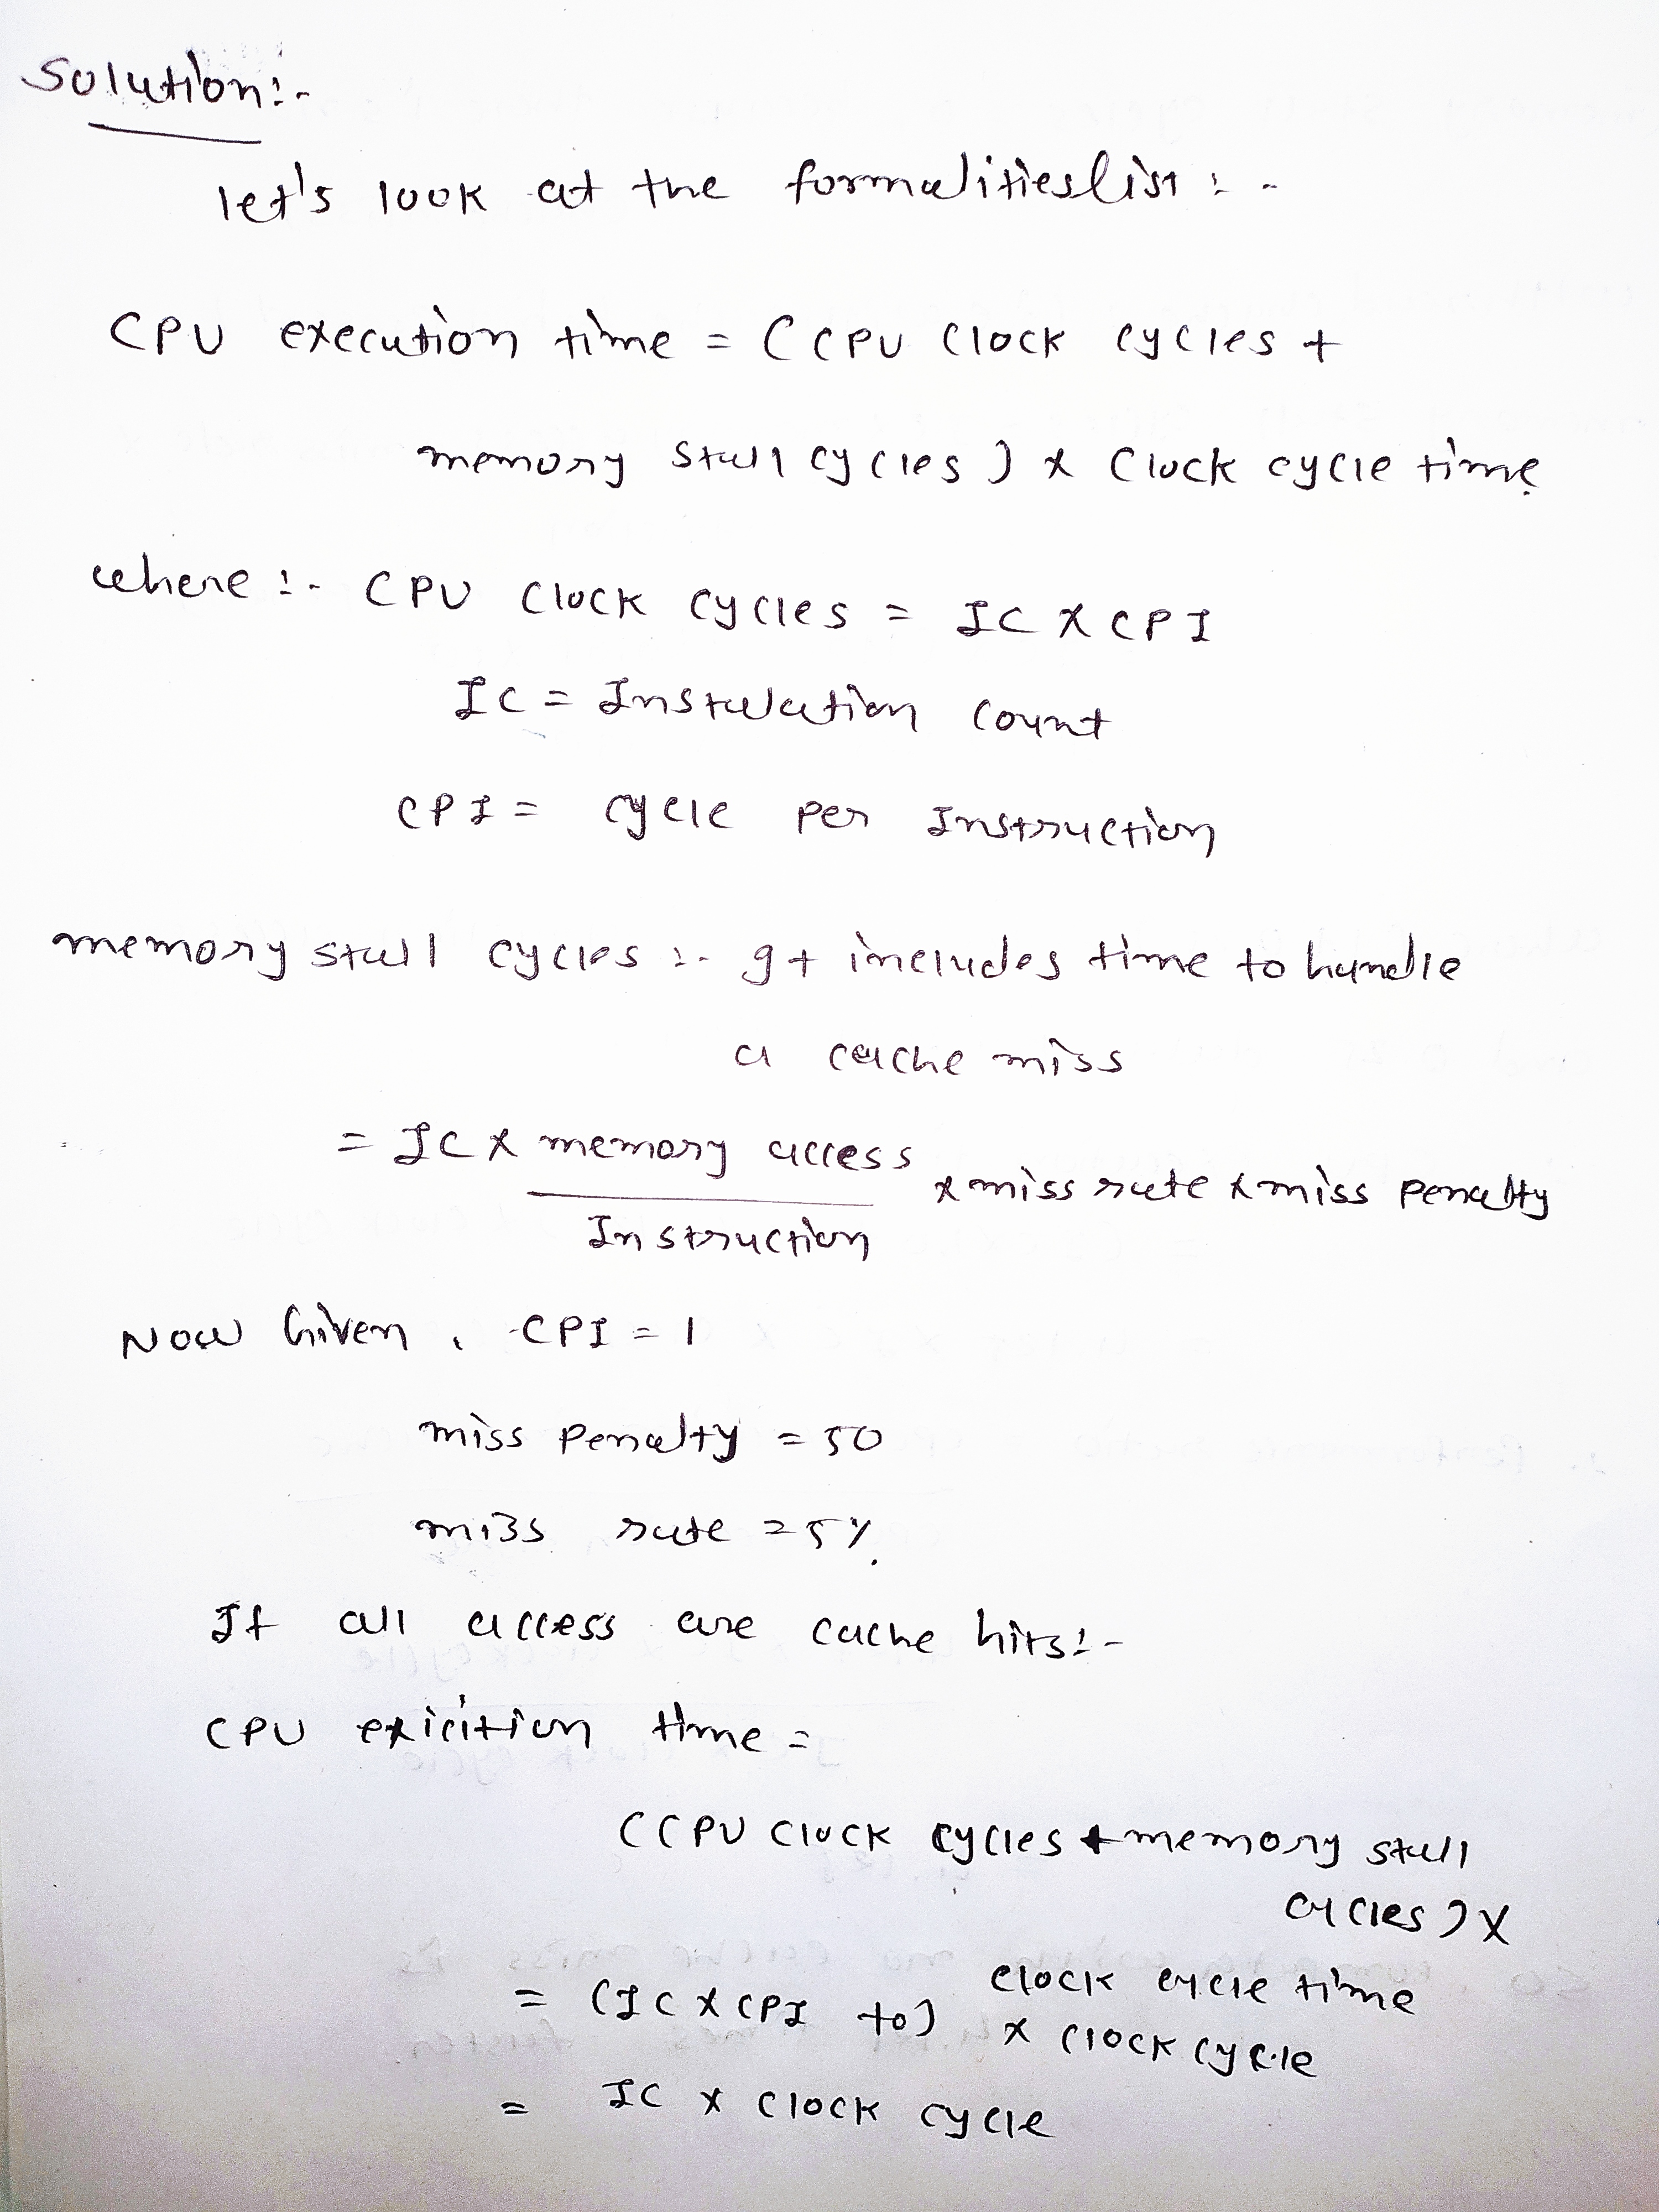 Solution:-
let's look at the formalitieslist :-
CPU execution time = (CPU clock cycles +
memory stall cycles) x Clock cycle time
where :- CPU Clock cycles = IC x CPI
IC = Instalation Count
CPI = cycle per Instruction
memory stall cycles :- It includes time to handle
a cache miss
= IC x memory access x miss rate x miss penalty
Instruction
Now Given, CPI = 1
miss penalty = 50
miss rate = 5%
If all access are cache hits:-
CPU exicition time =
(CPU clock cycles + memory stall
cycles) x
clock cycle time
= (IC x CPI to) x clock cycle
= IC x clock cycle